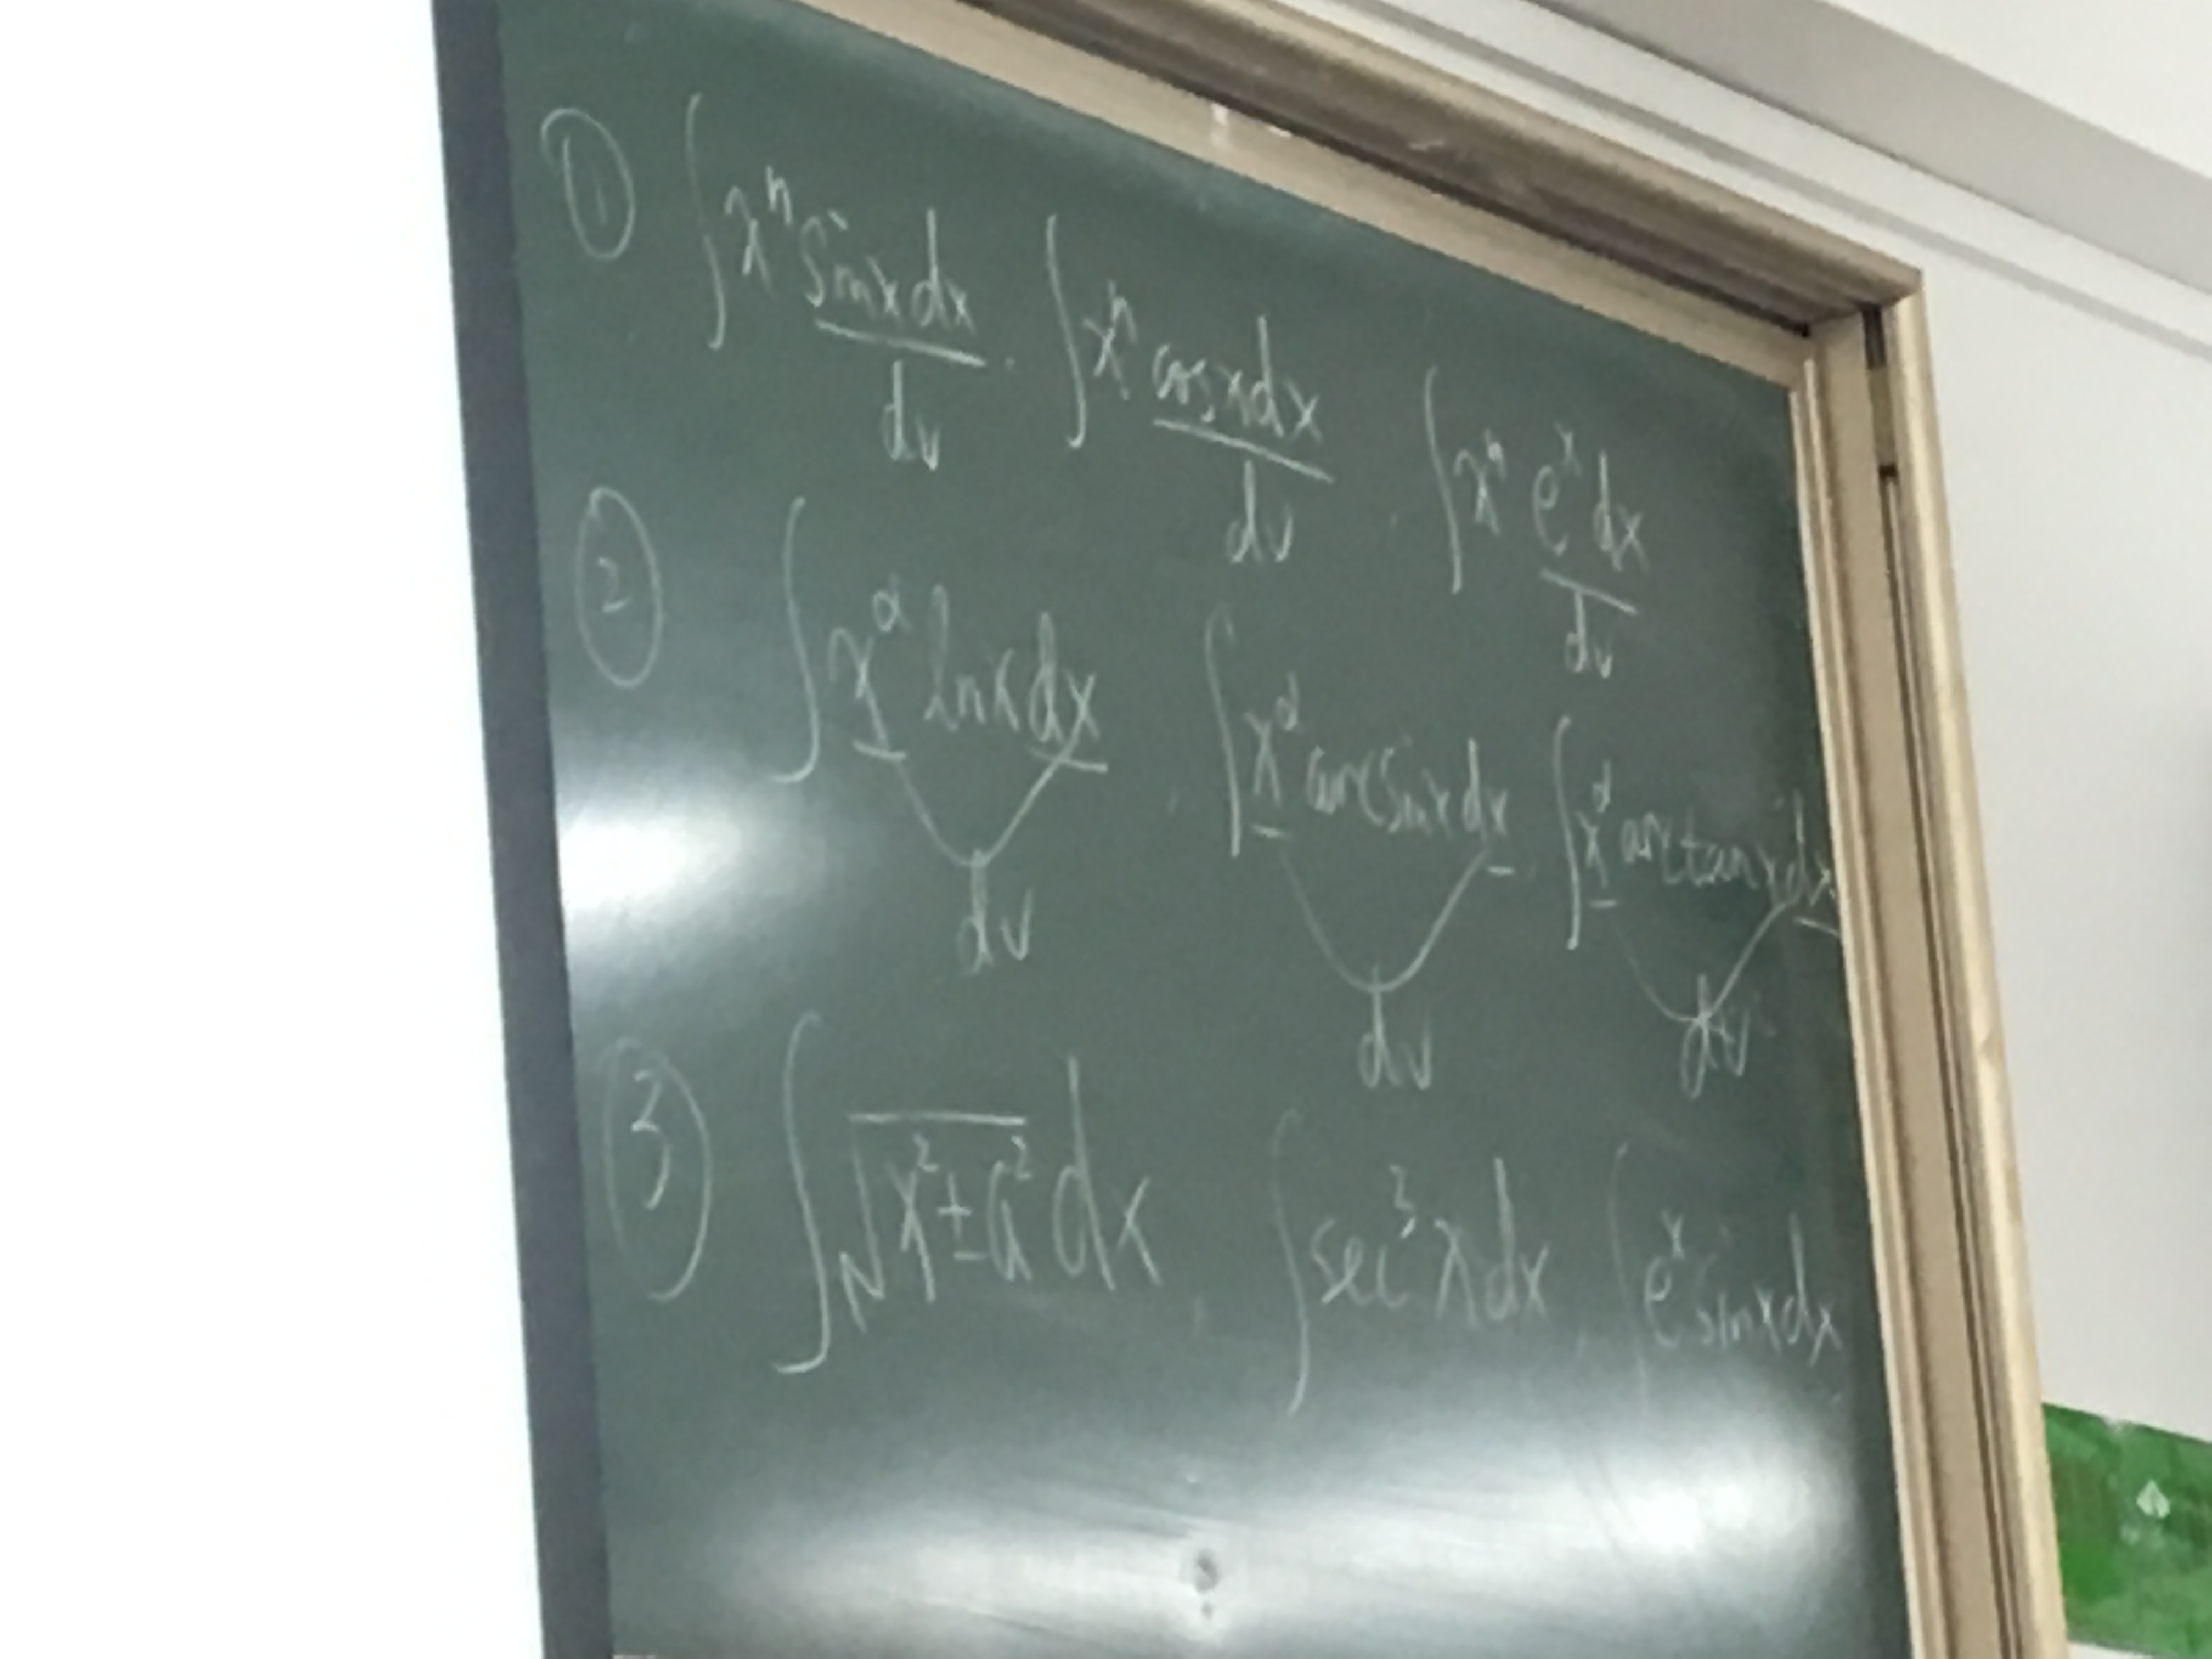 ① ∫xⁿ sinx dx . ∫xⁿ cosx dx . ∫xⁿ eˣ dx
dv dv dv
② ∫x^α lnx dx . ∫x^α arcsinx dx . ∫x^α arctanx dx
dv dv dv
③ ∫√(x²±a²) dx . ∫sec³x dx . ∫eˣ sinx dx